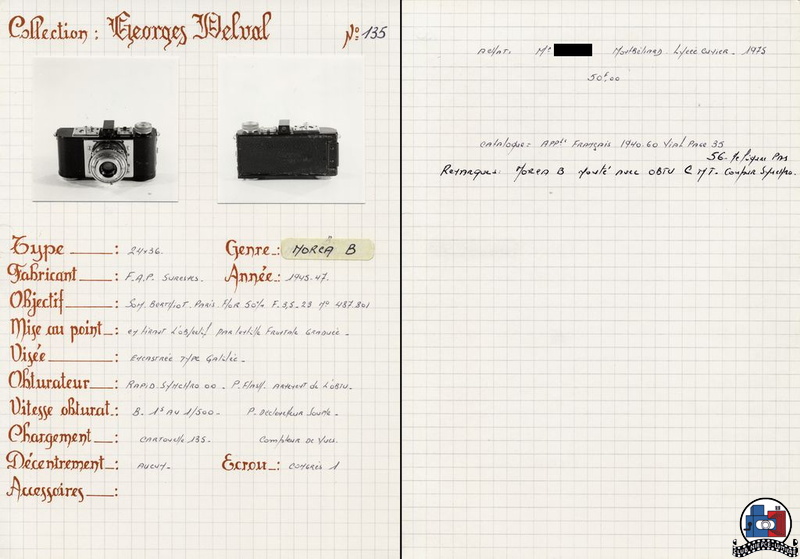 Collection : Georges Delval Nº 135
Type : 24x36.
Genre : NORCA B
Fabricant : F.A.P. SURESNES.
Année : 1945-47.
Objectif : SOM. BERTHIOT. PARIS. FLOR 50m/m F. 3,5_23 Nº 487.801
Mise au point : en tirant L'objectif par lentille Frontale Graduée _
Visée : Encastrée Type Galilée _
Obturateur : RAPID. SYNCHRO 00 _ P. Flash. arrivant de L'OBTU _
Vitesse obturat : B. 1s AU 1/500 _ P. Déclencheur Souple _
Chargement : CARTOUCHE 135. Compteur de Vues.
Décentrement : AUCUN _
Ecrou : CONGRÈS 1
Accessoires :
ACHAT. Mr Montbéliard. Lycée Cuvier _ 1975
50f.00
CATALOGUE: APPts FRANÇAIS 1940.60 Vial Page 35
56. Ne figure Pas
Remarques: NORCA B monté avec OBTU C.M.T.